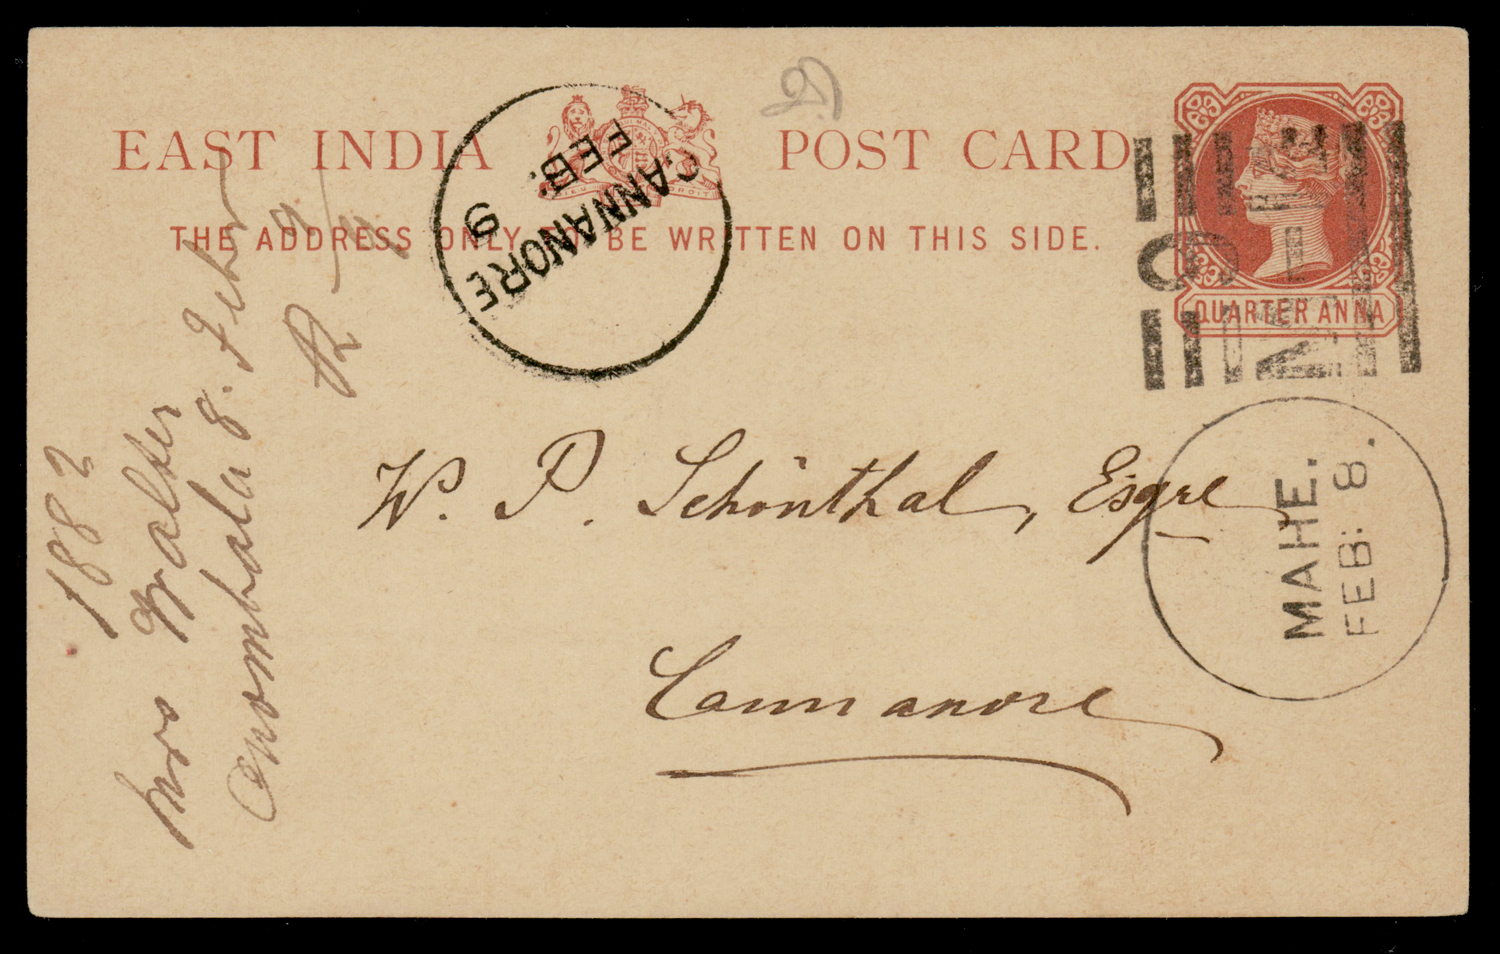 EAST INDIA POST CARD
THE ADDRESS ONLY TO BE WRITTEN ON THIS SIDE.
QUARTER ANNA
CANNANORE
FEB: 9
MAHE.
FEB: 8.
W. P. Schönthal, Esqre
Cannanore
1882
Mrs Walter
Chombala 8. Febr
R 9/2